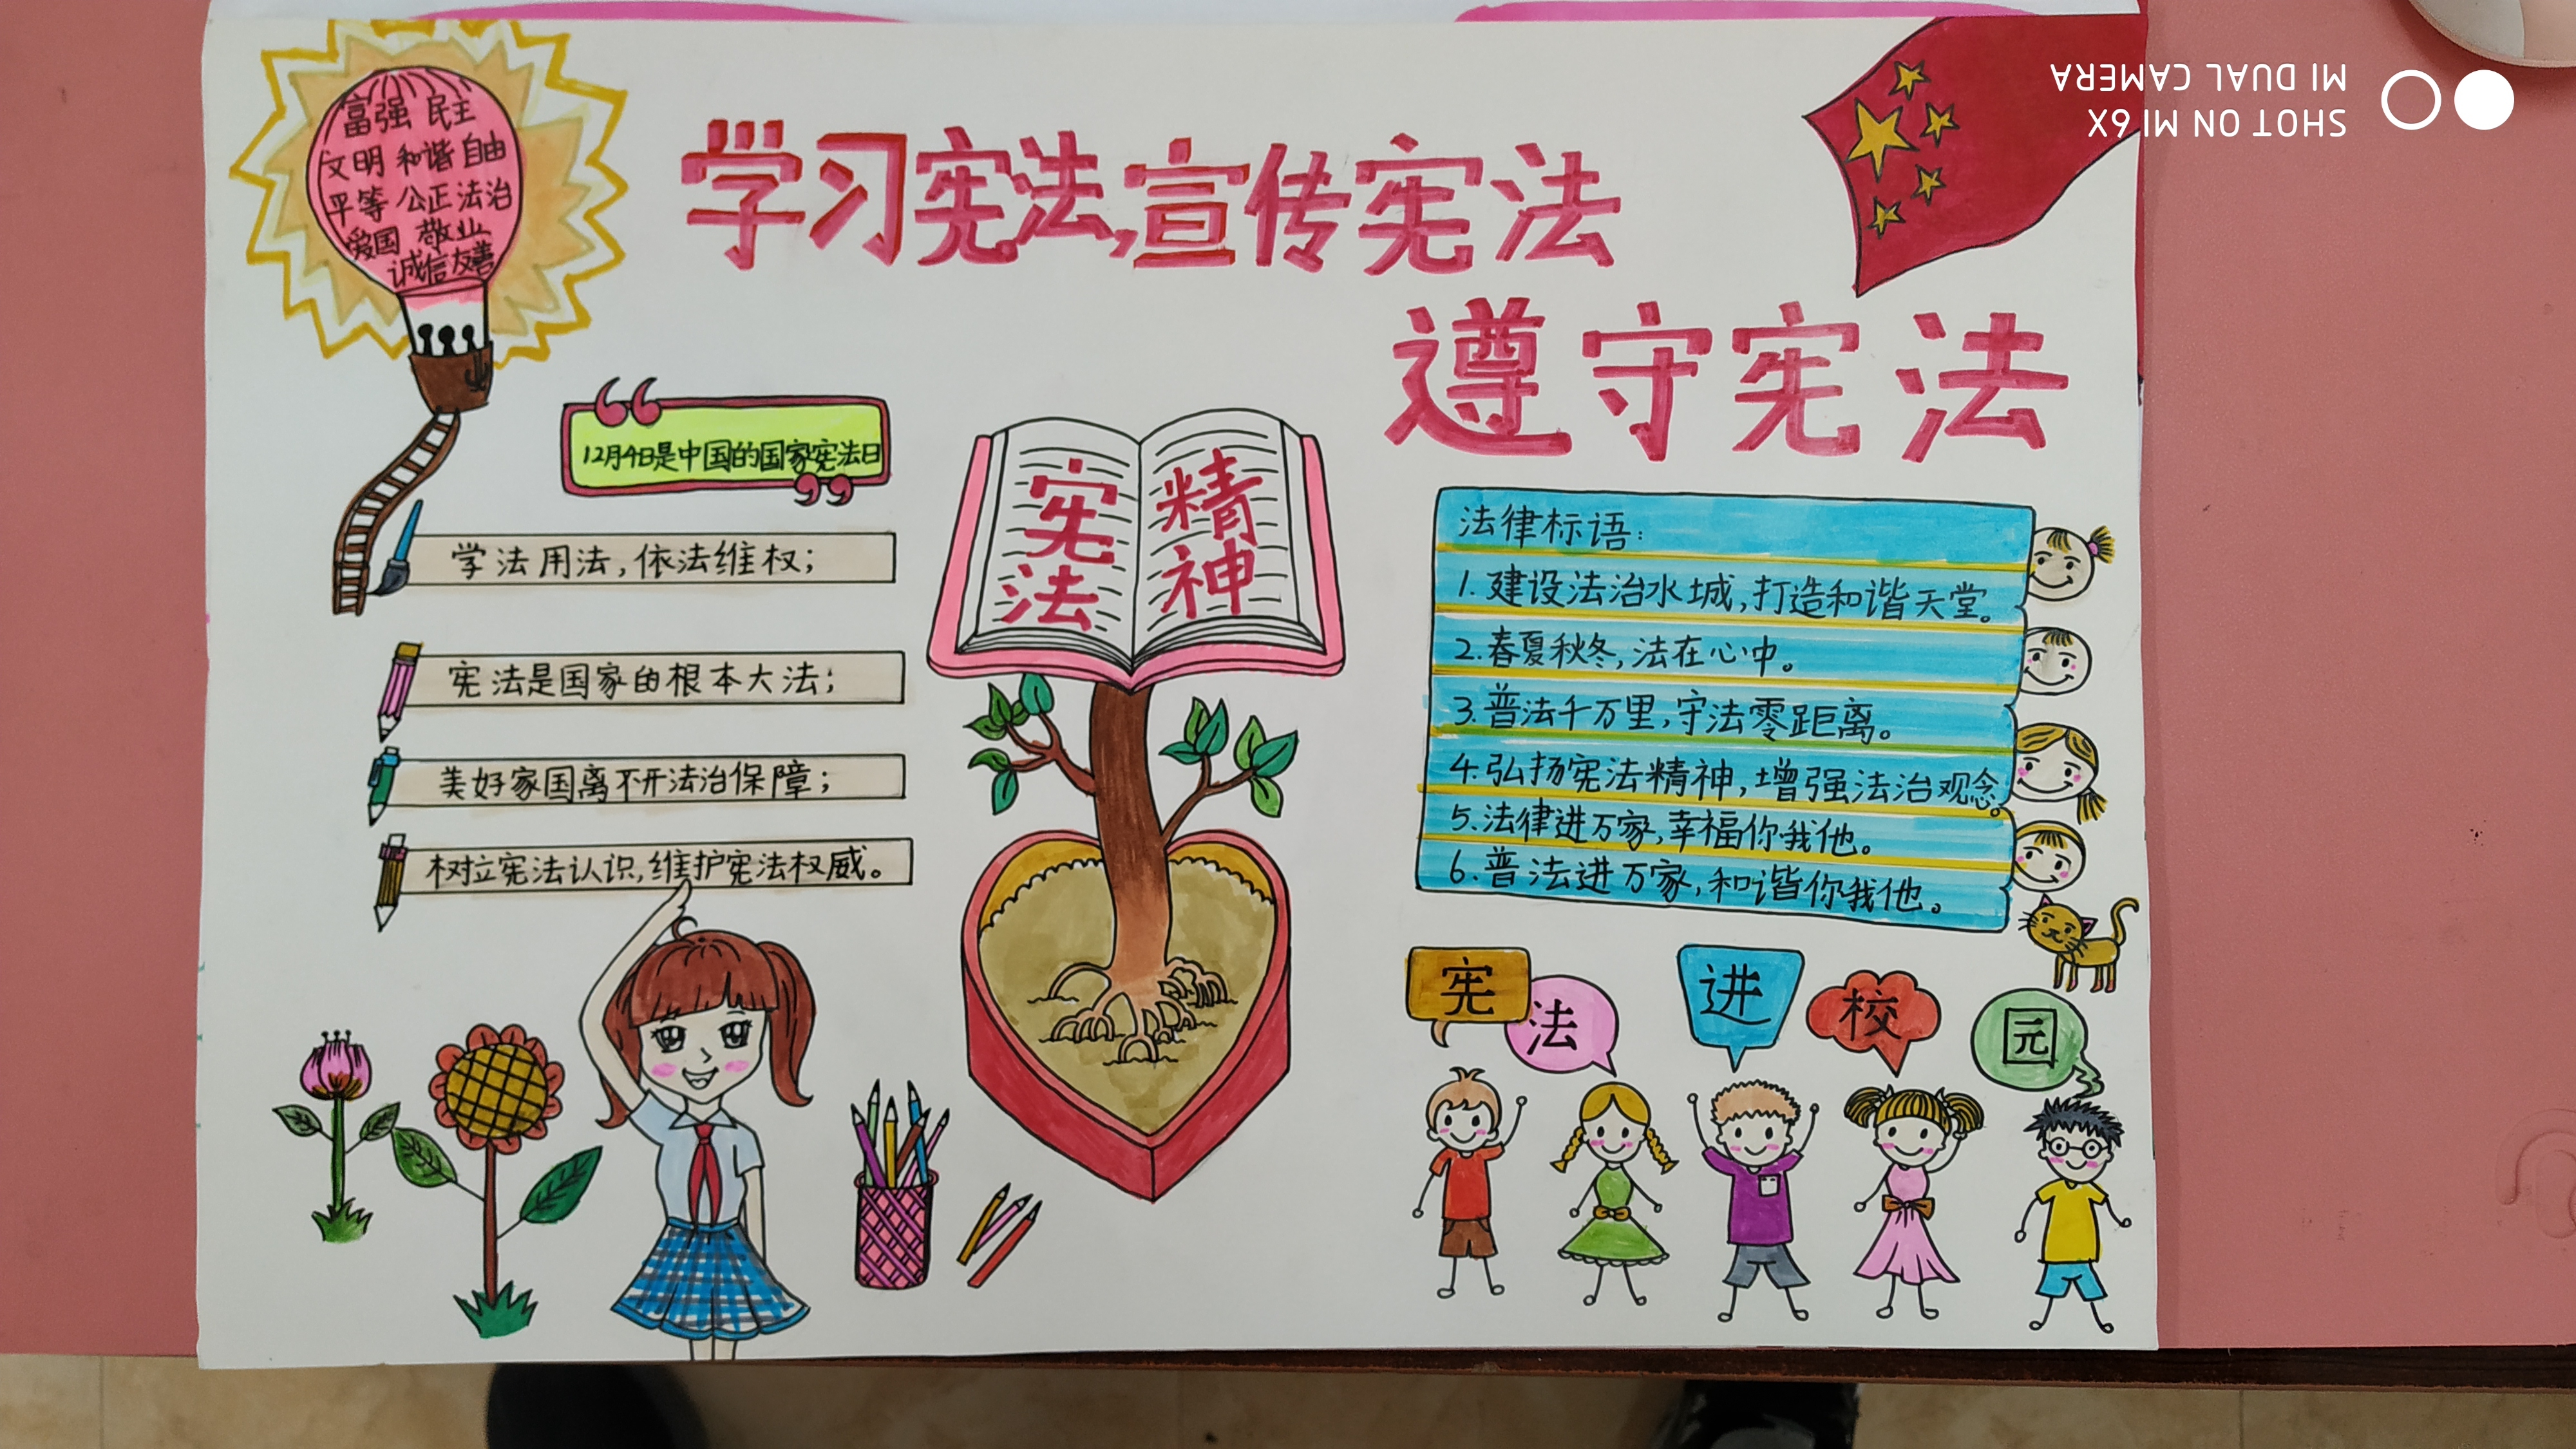 富强 民主
文明 和谐 自由
平等 公正 法治
爱国 敬业
诚信 友善
学习宪法,宣传宪法
遵守宪法
12月4日是中国的国家宪法日
学法用法,依法维权;
宪法是国家的根本大法;
美好家国离不开法治保障;
树立宪法认识,维护宪法权威。
宪法
精神
法律标语:
1.建设法治水城,打造和谐天堂。
2.春夏秋冬,法在心中。
3.普法千万里,守法零距离。
4.弘扬宪法精神,增强法治观念。
5.法律进万家,幸福你我他。
6.普法进万家,和谐你我他。
宪法进校园
SHOT ON MI 6X
MI DUAL CAMERA